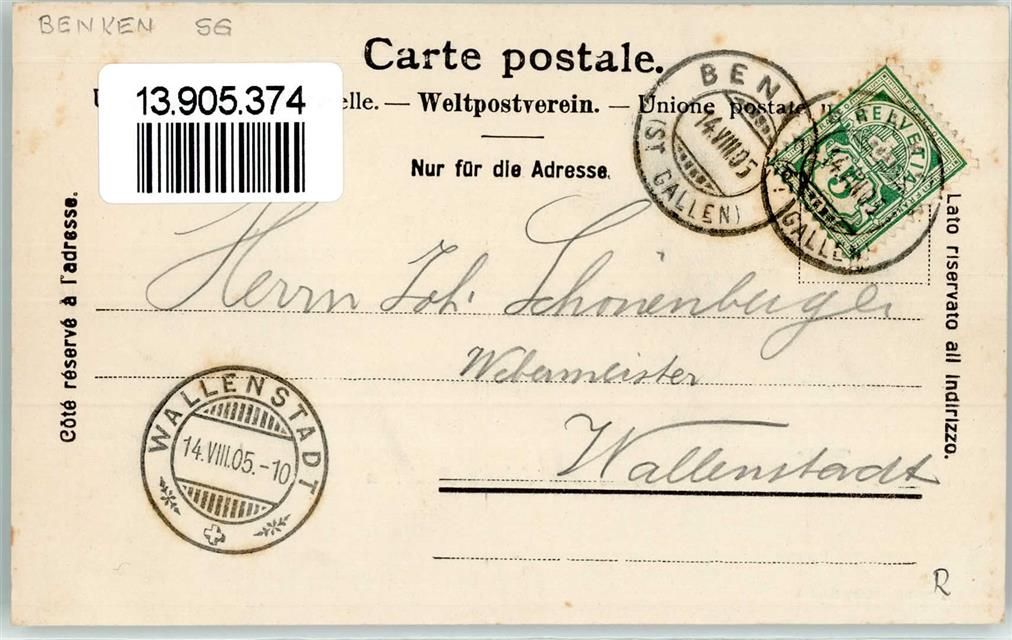 BENKEN SG
Carte postale.
13.905.374
elle. — Weltpostverein. — Unione postale u
Nur für die Adresse.
BEN
14.VIII.05
(ST. GALLEN)
HELVETIA
5
GALLEN)
Côté réservé à l'adresse.
Lato riservato all indirizzo.
Herrn Joh. Schönenberger
Webermeister
Wallenstadt
WALLENSTADT
14.VIII.05.-10
R